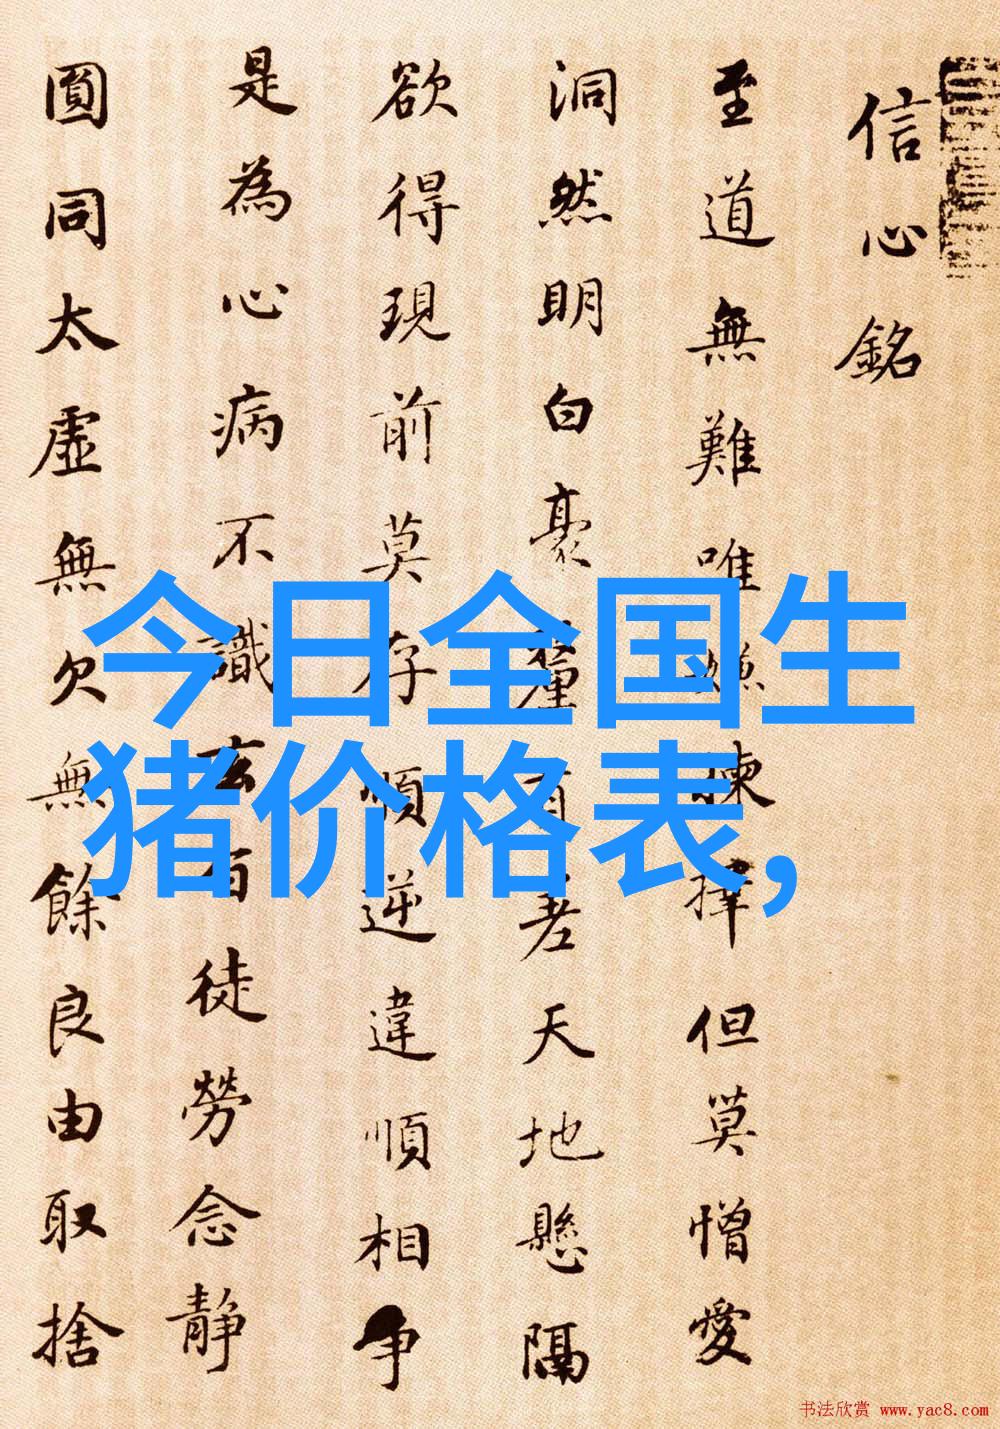 信心銘
至道無難唯嫌揀擇但莫憎愛
洞然明白豪釐有差天地懸隔
欲得現前莫存順逆違順相争
是為心病不識玄旨徒勞念静
圓同太虛無欠無餘良由取捨
今日全国生
猪价格表,
书法欣赏 www.yac8.com